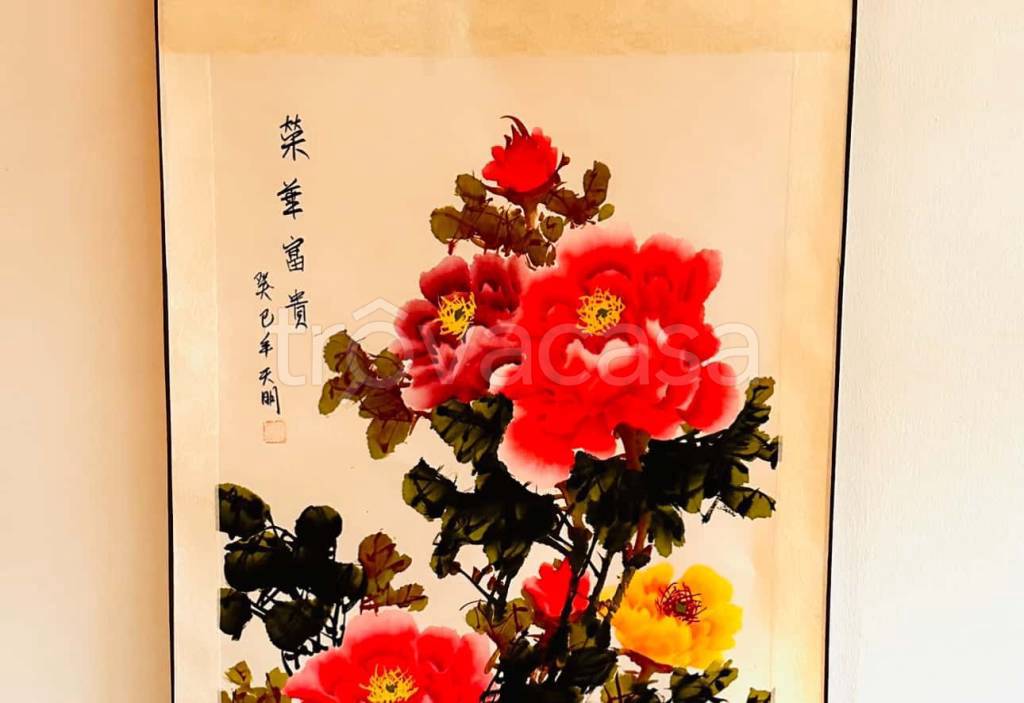 榮華富貴
癸巳年天明
trovacasa